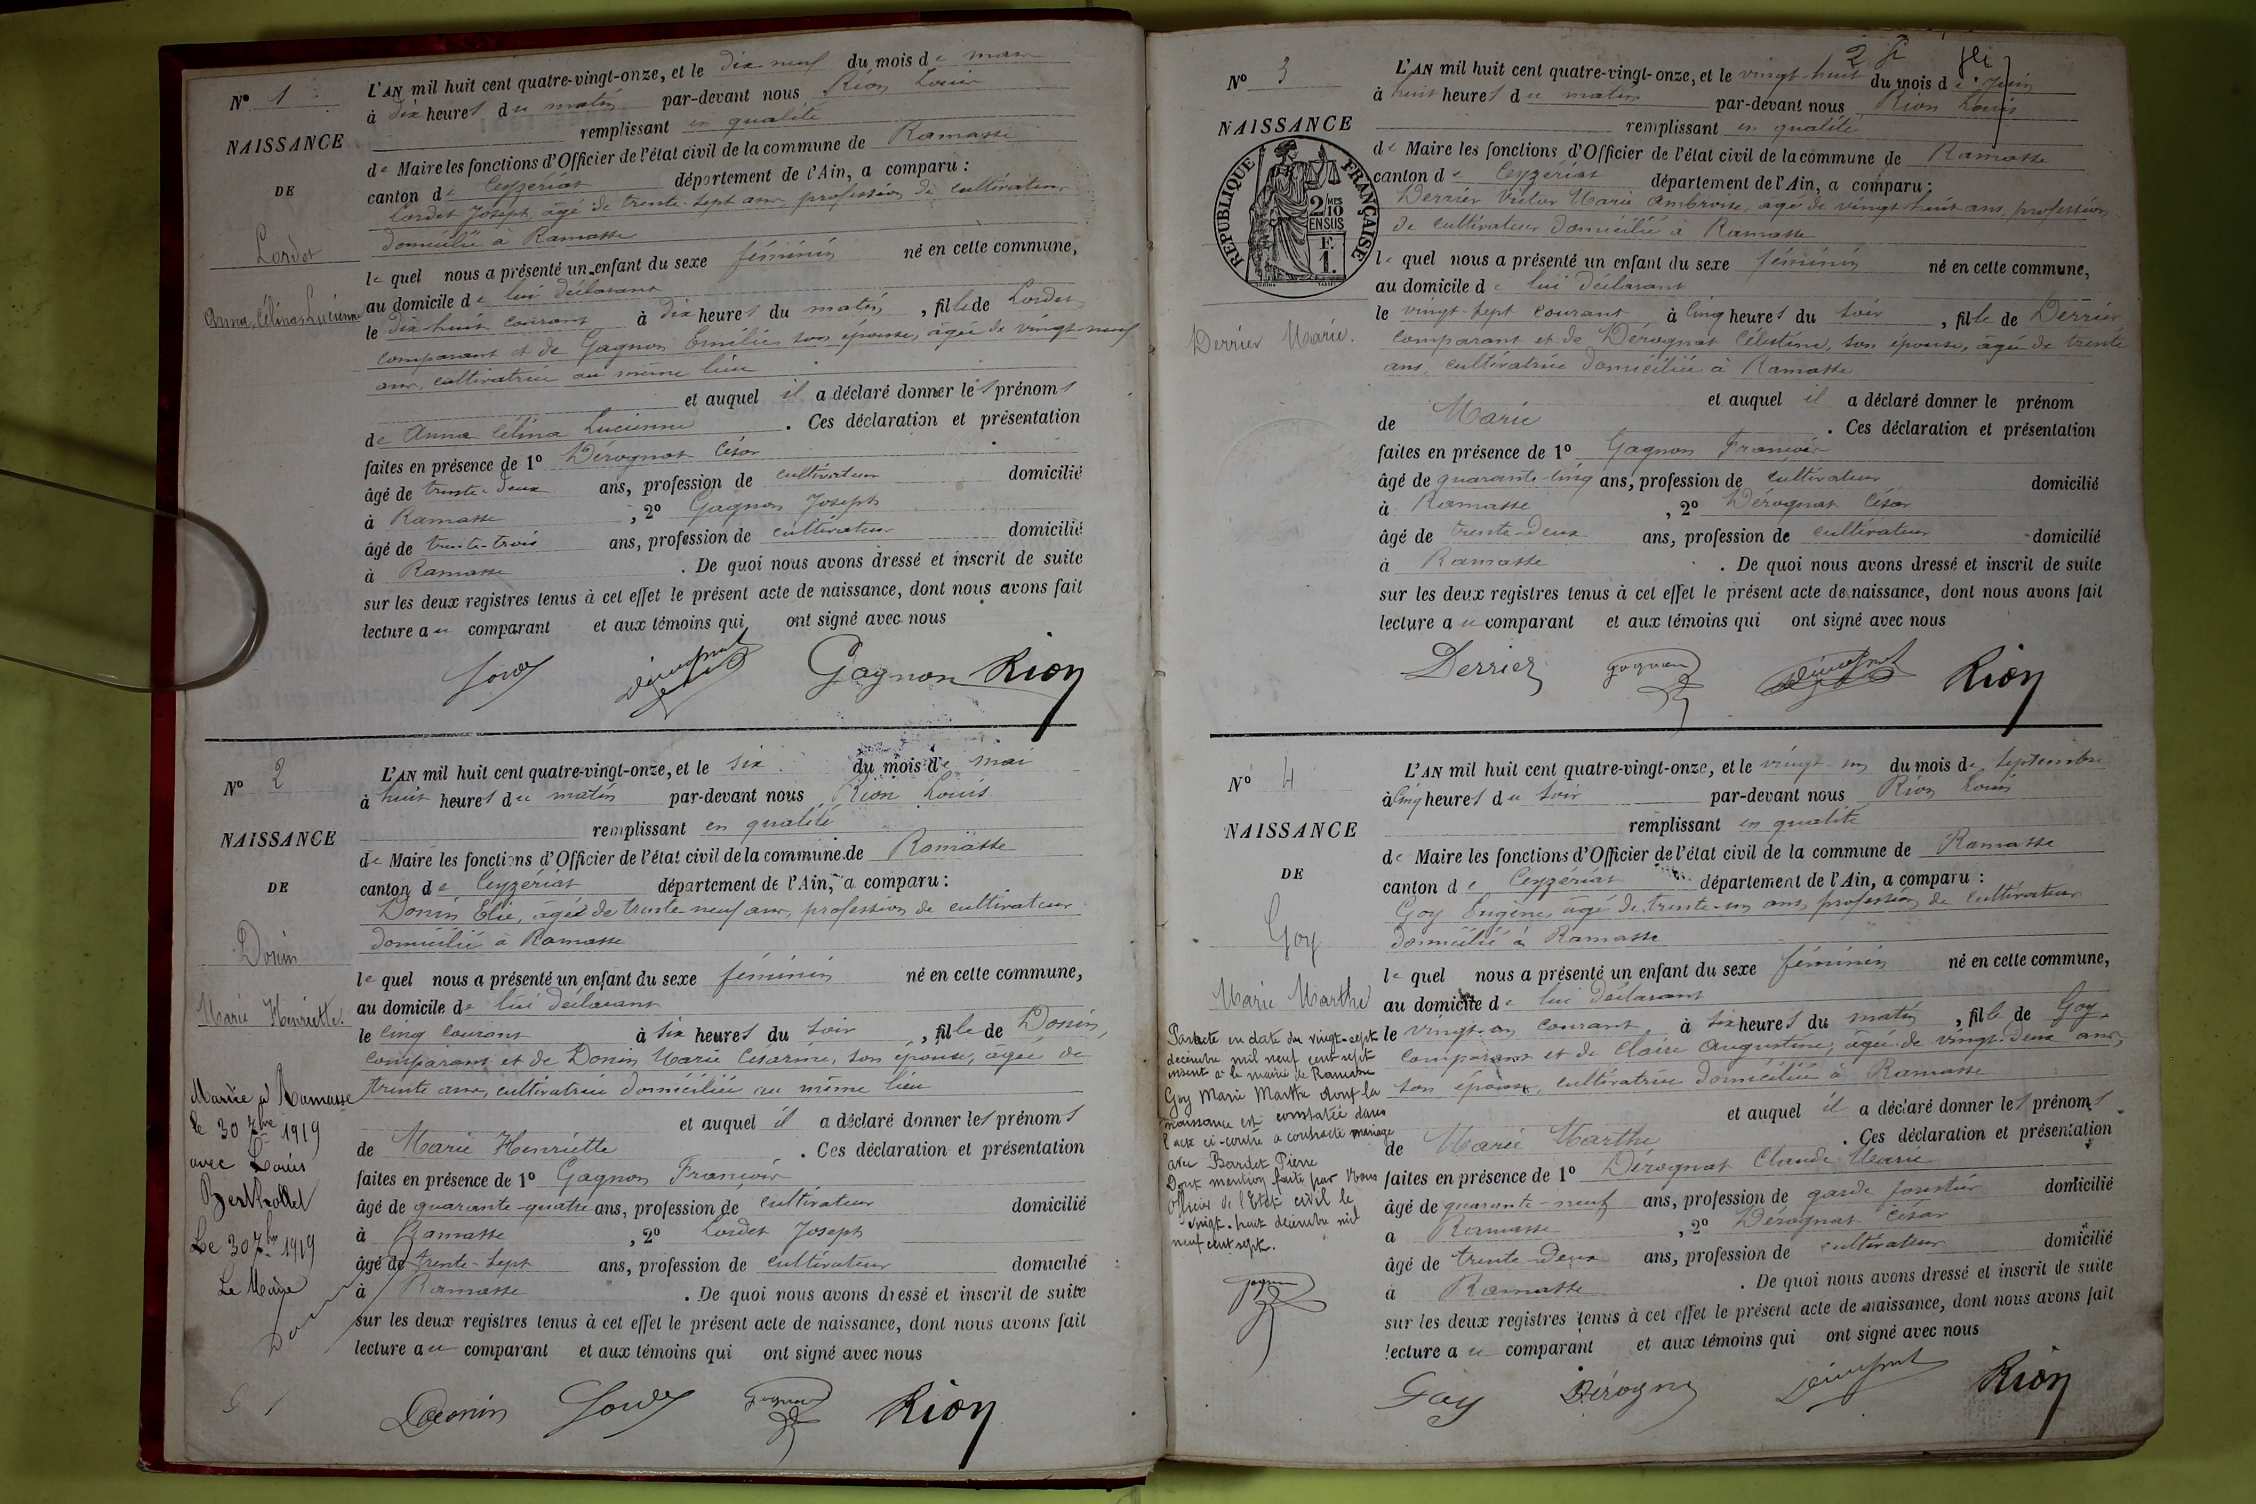 N° 1
NAISSANCE
DE
Lordet
Anna Célina Lucienne
L'AN mil huit cent quatre-vingt-onze, et le dix-neuf du mois de mars
à dix heures du matin par-devant nous Rion Louis
remplissant en qualité
de Maire les fonctions d'Officier de l'état civil de la commune de Ramasse
canton de Ceyzériat département de l'Ain, a comparu :
Lordet Joseph, âgé de trente-sept ans, profession de cultivateur
domicilié à Ramasse
le quel nous a présenté un enfant du sexe féminin né en cette commune,
au domicile de lui déclarant
le dix-huit courant à dix heures du matin, fille de Lordet
comparant et de Gagnon Emilie, son épouse, âgée de vingt-neuf
ans, cultivatrice au même lieu
et auquel il a déclaré donner les prénoms
de Anna Célina Lucienne. Ces déclaration et présentation
faites en présence de 1° Dérognat César
âgé de trente-deux ans, profession de cultivateur domicilié
à Ramasse, 2° Gagnon Joseph
âgé de trente-trois ans, profession de cultivateur domicilié
à Ramasse. De quoi nous avons dressé et inscrit de suite
sur les deux registres tenus à cet effet le présent acte de naissance, dont nous avons fait
lecture au comparant et aux témoins qui ont signé avec nous
Gagnon Rion
N° 2
NAISSANCE
DE
Donin
Marie Henriette.
Mariée à Ramasse
le 30 7bre 1919
avec Louis
Berthollet
Le 30 7bre 1919
Le Maire
L'AN mil huit cent quatre-vingt-onze, et le six du mois de mai
à huit heures du matin par-devant nous Rion Louis
remplissant en qualité
de Maire les fonctions d'Officier de l'état civil de la commune de Ramasse
canton de Ceyzériat département de l'Ain, a comparu :
Donin Elie, âgé de trente-neuf ans, profession de cultivateur
domicilié à Ramasse
le quel nous a présenté un enfant du sexe féminin né en cette commune,
au domicile de lui déclarant
le cinq courant à six heures du soir, fille de Donin,
comparant et de Donin Marie Césarine, son épouse, âgée de
trente ans, cultivatrice domiciliée au même lieu
et auquel il a déclaré donner les prénoms
de Marie Henriette. Ces déclaration et présentation
faites en présence de 1° Gagnon François
âgé de quarante-quatre ans, profession de cultivateur domicilié
à Ramasse, 2° Lordet Joseph
âgé de trente-sept ans, profession de cultivateur domicilié
à Ramasse. De quoi nous avons dressé et inscrit de suite
sur les deux registres tenus à cet effet le présent acte de naissance, dont nous avons fait
lecture au comparant et aux témoins qui ont signé avec nous
Donin gagnon Rion
N° 3
NAISSANCE
REPUBLIQUE FRANÇAISE
2/10 MES
EN SUS
F.
1.
Derrier Marie.
L'AN mil huit cent quatre-vingt-onze, et le vingt-huit du mois de Juin
à huit heures du matin par-devant nous Rion Louis
remplissant en qualité
de Maire les fonctions d'Officier de l'état civil de la commune de Ramasse
canton de Ceyzériat département de l'Ain, a comparu :
Derrier Victor Marie Ambroise, âgé de vingt-huit ans, profession
de cultivateur domicilié à Ramasse
le quel nous a présenté un enfant du sexe féminin né en cette commune,
au domicile de lui déclarant
le vingt-sept courant à cinq heures du soir, fille de Derrier
comparant et de Dérognat Célestine, son épouse, âgée de trente
ans, cultivatrice domiciliée à Ramasse
et auquel il a déclaré donner le prénom
de Marie. Ces déclaration et présentation
faites en présence de 1° Gagnon François
âgé de quarante-cinq ans, profession de cultivateur domicilié
à Ramasse, 2° Dérognat César
âgé de trente-deux ans, profession de cultivateur domicilié
à Ramasse. De quoi nous avons dressé et inscrit de suite
sur les deux registres tenus à cet effet le présent acte de naissance, dont nous avons fait
lecture au comparant et aux témoins qui ont signé avec nous
Derrier gagnon Rion
N° 4
NAISSANCE
DE
Goy
Marie Marthe
Par acte en date du vingt-sept
décembre mil neuf cent sept
inscrit à la mairie de Ramasse
Goy Marie Marthe dont la
naissance est constatée dans
l'acte ci-contre a contracté mariage
avec Bardet Pierre
Dont mention faite par Nous
officier de l'Etat civil le
vingt-huit décembre mil
neuf cent sept.
gagnon
L'AN mil huit cent quatre-vingt-onze, et le vingt-un du mois de Septembre
à cinq heures du soir par-devant nous Rion Louis
remplissant en qualité
de Maire les fonctions d'Officier de l'état civil de la commune de Ramasse
canton de Ceyzériat département de l'Ain, a comparu :
Goy Eugène, âgé de trente-un ans, profession de cultivateur
domicilié à Ramasse
le quel nous a présenté un enfant du sexe féminin né en cette commune,
au domicile de lui déclarant
le vingt-un courant à six heures du matin, fille de Goy
comparant et de Claire Augustine, âgée de vingt-deux ans,
son épouse, cultivatrice domiciliée à Ramasse
et auquel il a déclaré donner les prénoms
de Marie Marthe. Ces déclaration et présentation
faites en présence de 1° Dérognat Claude Marie
âgé de quarante-neuf ans, profession de garde forestier domicilié
à Ramasse, 2° Dérognat César
âgé de trente-deux ans, profession de cultivateur domicilié
à Ramasse. De quoi nous avons dressé et inscrit de suite
sur les deux registres tenus à cet effet le présent acte de naissance, dont nous avons fait
lecture au comparant et aux témoins qui ont signé avec nous
Goy Rion